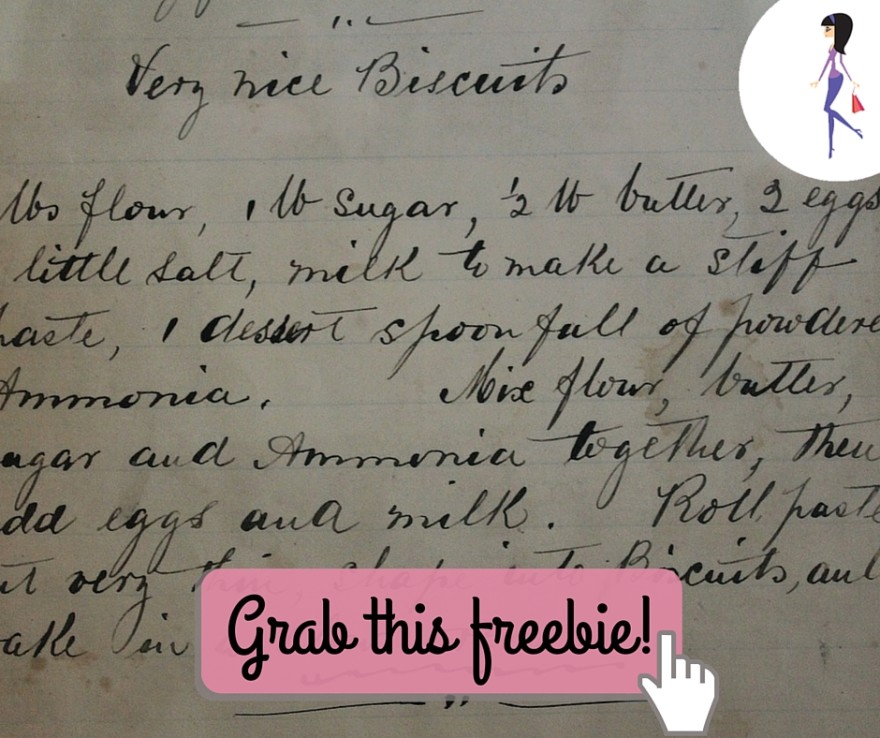 Very nice Biscuits
lbs flour, 1 lb sugar, ½ lb butter, 2 eggs
little salt, milk to make a stiff
paste, 1 dessert spoonfull of powdere
Ammonia. Mix flour, butter,
ugar and Ammonia together, then
dd eggs and milk. Roll paste
ut very thin, shape into Biscuits, and
ake in
Grab this freebie!